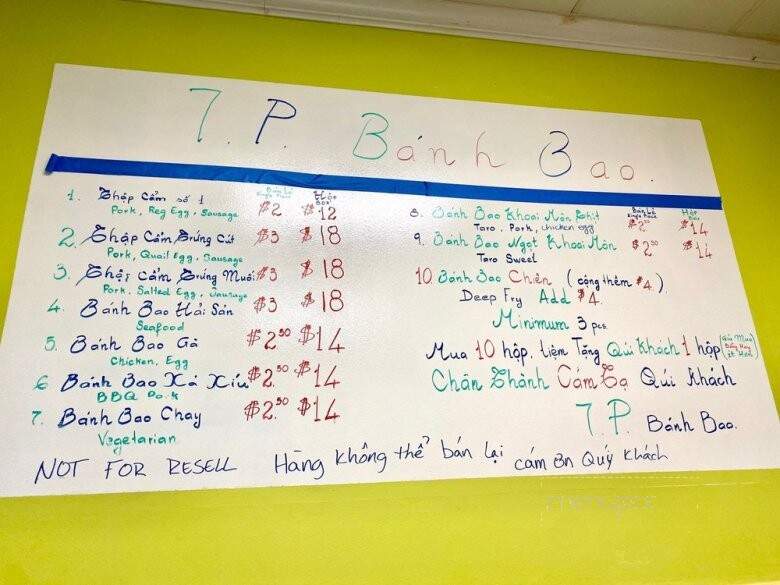 7. P. Bánh Bao.
Bán Lẻ Hộp
Single Piece Box
1. Thập Cẩm số 1 $2 $12
Pork, Reg Egg, Sausage
2. Thập Cẩm Trứng Cút $3 $18
Pork, Quail Egg, Sausage
3. Thập Cẩm Trứng Muối $3 $18
Pork, Salted Egg, Sausage
4. Bánh Bao Hải Sản $3 $18
Seafood
5. Bánh Bao Gà $2.50 $14
Chicken, Egg
6 Bánh Bao Xá Xíu $2.50 $14
BBQ Pork
7. Bánh Bao Chay $2.50 $14
Vegetarian
Bán Lẻ Hộp
Single Piece Box
8. Bánh Bao Khoai Môn Thịt $2.50 $14
Taro, Pork, chicken egg
9. Bánh Bao Ngọt Khoai Môn $2.50 $14
Taro Sweet
10. Bánh Bao Chiên (cộng thêm $4.)
Deep Fry Add $4.
Minimum 3 pcs
Mua 10 hộp, tiệm Tặng Quí Khách 1 hộp
Chân Thành Cám Tạ Quí Khách
7. P. Bánh Bao.
NOT FOR RESELL Hàng không thể bán lại cám ơn Quý Khách